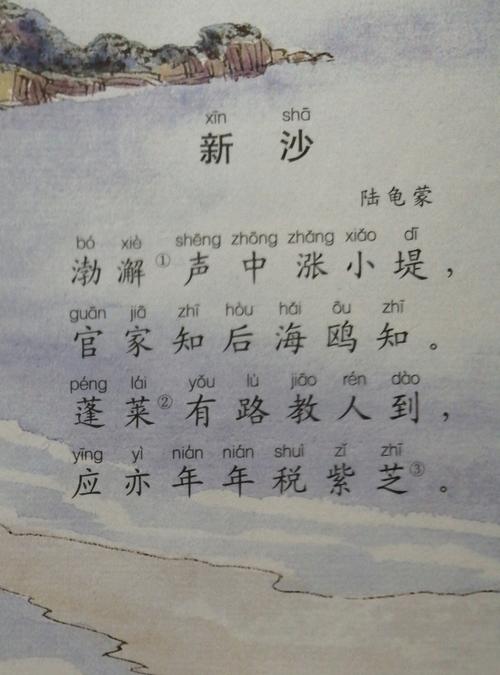 xīn shā
新 沙
陆龟蒙
bó xiè shēng zhōng zhǎng xiǎo dī
渤澥①声中涨小堤，
guān jiā zhī hòu hǎi ōu zhī
官家知后海鸥知。
péng lái yǒu lù jiāo rén dào
蓬莱②有路教人到，
yīng yì nián nián shuì zǐ zhī
应亦年年税紫芝③。